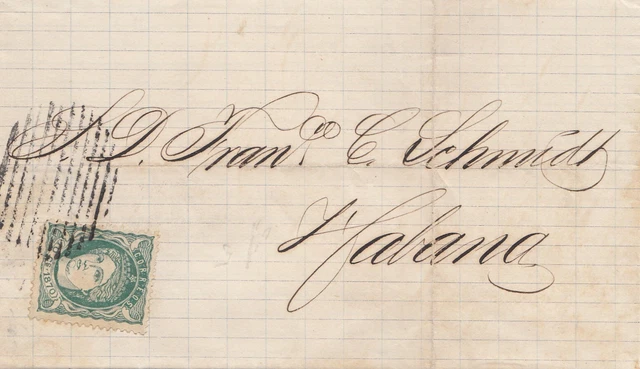 S. D. Franco. C. Schmidt
Habana
CORREOS
1870